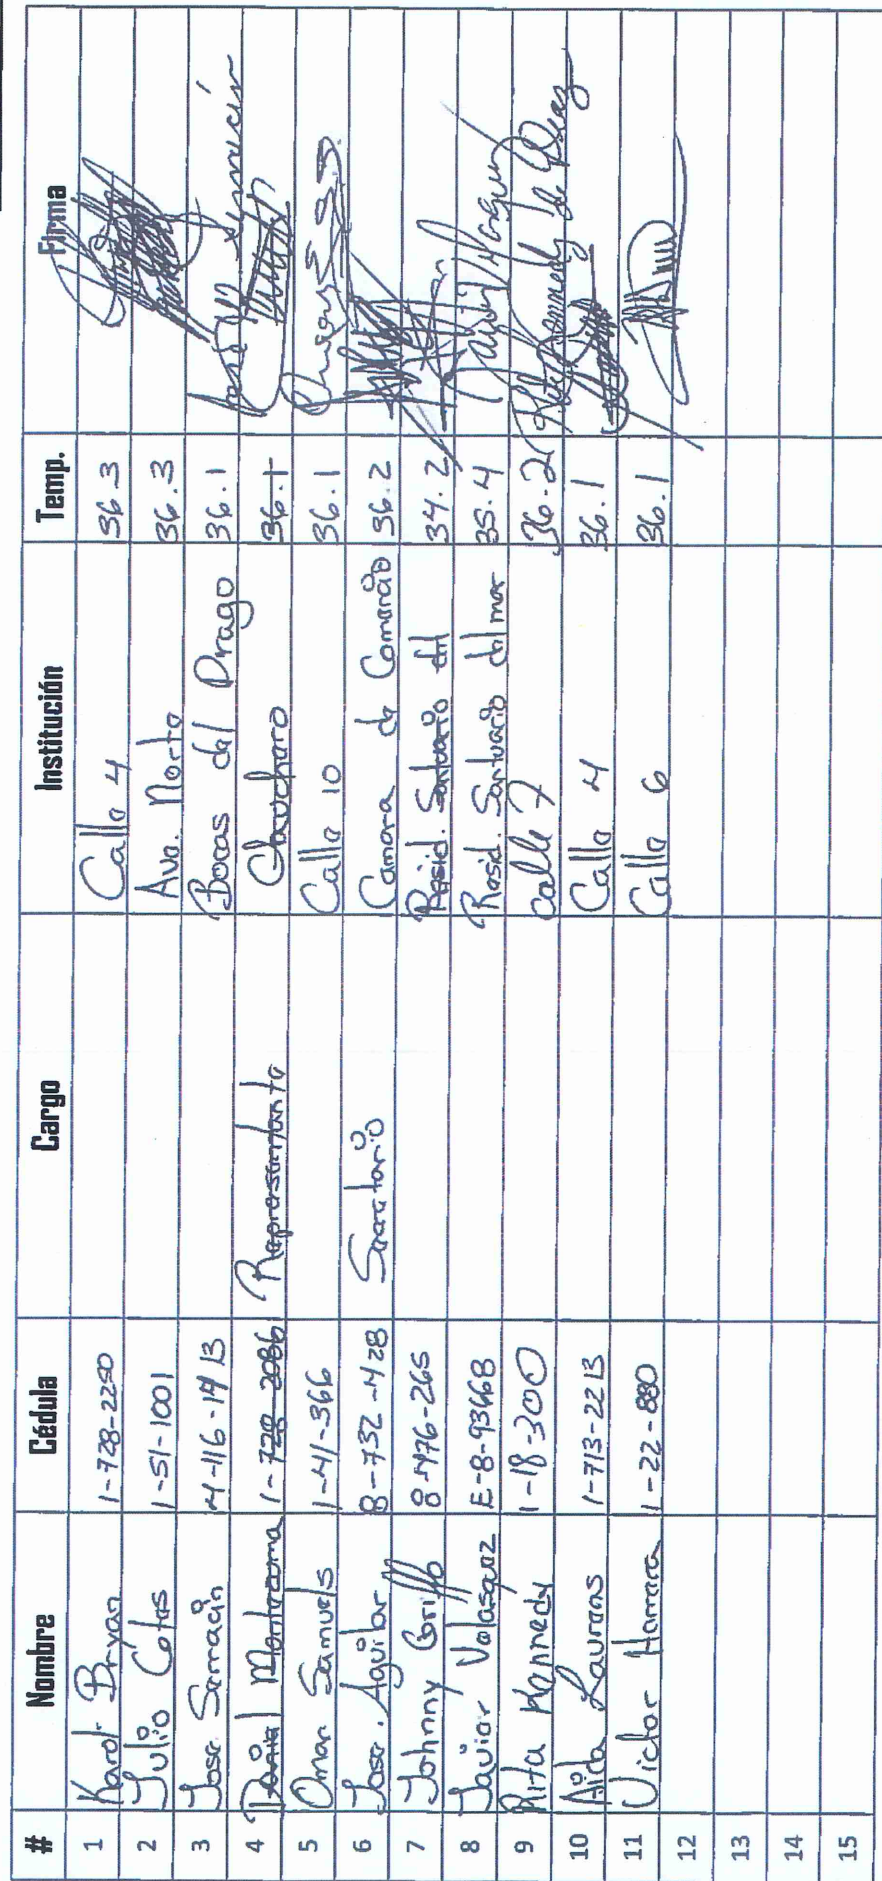 # Nombre Cédula Cargo Institución Temp. Firma
1 Karol Bryan 1-728-2250 Calle 4 36.3
2 Julio Cotes 1-51-1001 Ava. Norte 36.3
3 Jose Serracin 4-116-1413 Bocas del Drago 36.1
4 Daniel Montezuma 1-728-2086 Representante Cauchero 36.1
5 Omar Samuels 1-41-366 Calle 10 36.1 Omar E S.S.
6 Jose. Aguilar 8-732-428 Secretario Camara de Comercio 36.2
7 Johnny Griffo 8-476-265 Resid. Santuario del 34.2
8 Javier Velásquez E-8-93668 Resid. Santuario del mar 35.4
9 Rita Kennedy 1-18-300 Calle 7 36.2 Rita Kennedy de Diaz
10 Aida Laurens 1-713-2213 Calle 4 36.1
11 Victor Herrera 1-22-880 Calle 6 36.1
12
13
14
15